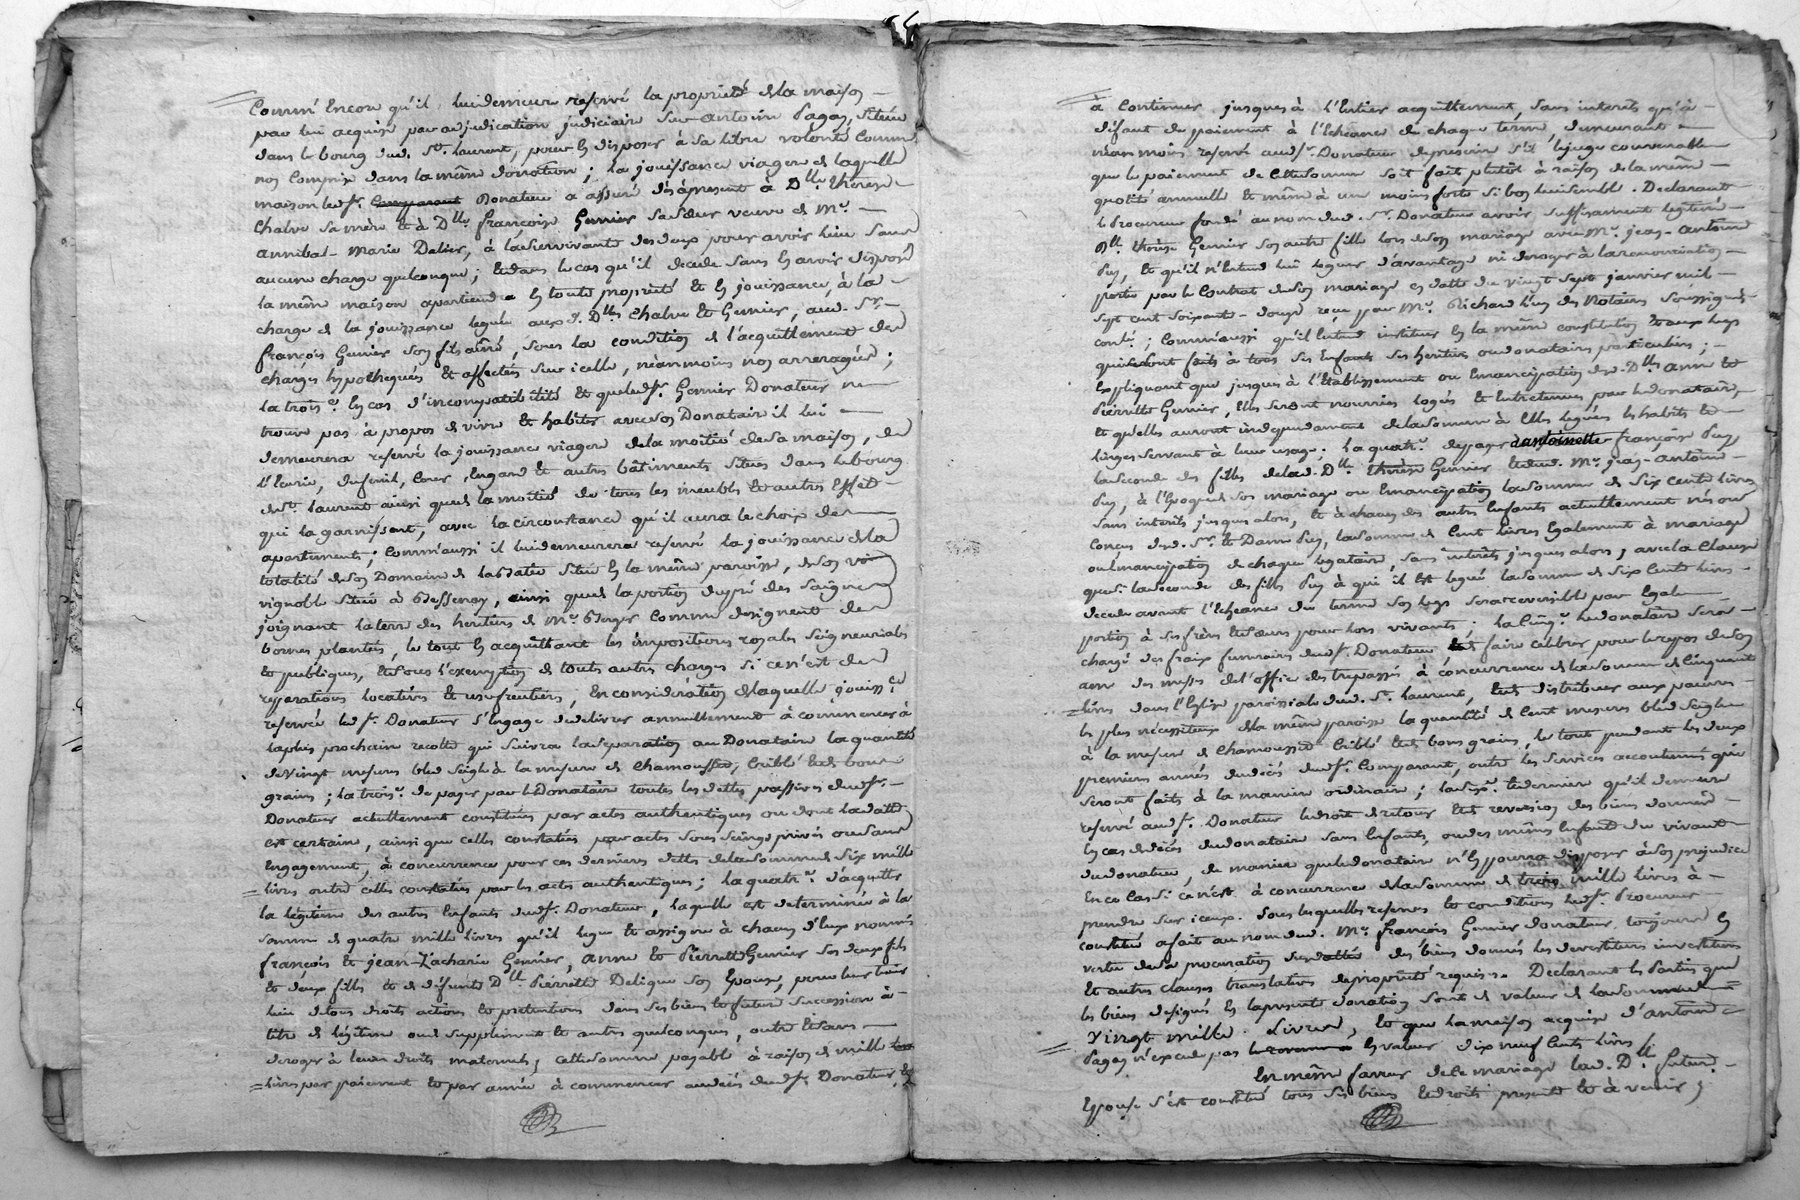 Comm'Encore qu'il luidemeure reservé la proprieté dela maison
par lui acquise par adjudication judiciaire sur antoine Pagay, située
dans le bourg dud. St. laurent, pour En disposer à sa libre volonté Comme
non Comprise dans la même donation; la jouissance viagere de laquelle
maison led. sr. Comparant Donateur a assuré dès àpresent à Dlle. therese
Chalve sa mère & à Dlle. françoise Gernier sa sœur veuve de Mr.
annibal-Marie Dalier, à la survivante desdeux pour avoir lieu sans
aucune charge quelconque; Etdans le cas qu'il decede sans En avoir disposé
la même maison apartiendra En toute proprieté Et En jouissance, à la
charge de la jouissance leguée auxd. Dlles. Chalve Et Gernier, aud. Sr.
françois Gernier son fils aîné, sous la condition de l'acquittement des
charges hypotequées Et affectées sur icelle, néanmoins non arreragées;
la trois.e En cas d'incompatibilité Et queled. sr. Gernier Donateur ne
trouve pas à propos de vivre Et habiter avec son Donataire il lui
demeurera reservé la jouissance viagere dela moitié desa maison, de
l'Ecurie, dufenil, Cour, Engard Et autres bâtiments situés dans lebourg
de St. laurent ainsi quede la moitié de tous les meubles Et autres Effets
qui la garnissent, avec la circonstance qu'il aura le choix des
apartements; Comm'aussi il luidemeurera reservé la jouissance dela
totalité deson Domaine de situé En la même paroisse, deson
vignoble situé à Bessenay, ainsi quede la portion dupré des Saignes
joignant laterre des heritiers de Mr. Berger Comme designent des
bornes plantées, le tout En acquittant les impositions royales seigneuriales
Et publiques, Etsous l'exemption de toutes autres charges si cen'est des
reparations locatives Et usufruitieres; En considération delaquelle jouiss.ce
reservée led. sr. Donateur s'Engage dedelivrer annuellement à commencer à
laplus prochaine recolte qui suivra laseparation au Donataire la quantité
deVingt mesures bled seigle à la mesure de Chamousset, criblé Etde bons
grains; la trois.e de payer par leDonataire toutes les dettes passives dud. sr.
Donateur actuellement constituées par actes authentiques ou dont la datte
est certaine, ainsi que celles constatées par actes sous seings privés ou sans
Engagement, à concurrence pour ces dernieres dettes delasomme de six mille
livres outre celles constatées par les actes authentiques; la quatr.e d'acquitter
la légitime des autres Enfants dud. sr. Donateur, laquelle est determinée à la
somme de quatre mille livres qu'il legue Et assigne à chacun d'Eux nommés
françois Et jean-Zacharie Gernier, anne Et Pierrette Gernier ses deux fils
Et deux filles Et de défunte Dlle. Pierrette Deligue son Epouse, pour leur tenir
lieu detous droits actions Et pretentions dans ses biens Et future succession à
titre de légitime oude supplement Et autres quelconques, outre Etsans
deroger à leurs droits maternels, cettesomme payable à raison de mille
livres par paiement Et par année à commencer audécès dud. sr. Donateur, Et
à Continuer jusques à l'Entier acquittement, sans interêts qu'à
défaut de paiement à l'Echeance de chaque terme, demeurant
néanmoins reservé aud. sr. Donateur deprescrire s'il lejuge convenable
que le paiement de cettesomme soit fait plutôt à raison de la même
quotité annuelle Et même à une moins forte si bon luisemble. Declarant
le Procureur fondé au nom dud. Sr. Donateur avoir suffisament légitimé
Dlle. therese Gernier son autre fille lors deson mariage avec Mr. jean-antoine
Puy, Et qu'il n'Entend lui leguer d'avantage ni deroger à la renonciation
portée par le Contrat deson mariage En datte du vingt sept janvier mil
sept cent soixante-douze reçu par Mr. Richard l'un des Notaires soussignés
conté.; Comm'aussi qu'il Entend instituer En la même constitution Etaux legs
quiseront faits à tous ses Enfants ses heritiers oudonataires particuliers;
Expliquant que jusques à l'Etablissement ou Emancipation desd. Dlles. anne Et
Pierrette Gernier, Elles seront nourries logées Et Entretenues par ledonataire,
Et qu'elles auront independament delasomme à Elles leguées les habits Et
linges servant à leur usage. la quatr.e depayer dantoinette françoise Puy
laseconde des filles delad. Dlle. therese Gernier Etdud. Mr. jean-antoine
Puy, à l'Epoque de son mariage ou Emancipation lasomme de six cents livres
sans interêts jusques alors, Et à chacun des autres Enfants actuellement nés ou
Conçus desd. Sr. Et Dame Puy, lasomme de Cent livres Egalement à mariage
ouEmancipation de chaque legataire, sans interêts jusques alors, avec la Clause
quesi laseconde des filles Puy à qui il Est legué lasomme de six Cents livres
decede avant l'Echeance du terme son legs serareversible par Egale
portion à ses frères Etsœurs pour lors vivants. la Cinq.e ledonataire sera
chargé des fraix funeraires dud. sr. Donateur Etde faire célébrer pour lerepos deson
ame des messes del'office des trepassés à concurrence de lasomme de Cinquante
livres dans l'Eglise paroissiale dud. St. laurent, Etde distribuer aux pauvres
les plus nécessiteux dela même paroisse la quantité de Cent mesures bled seigle
à la mesure de Chamousset Criblé Etde bons grains, le tout pendant les deux
premieres années dudécès dud. sr. Comparant, outre les services accoutumés qui
seront faits à la maniere ordinaire; lasix.e Etderniere qu'il demeure
reservé aud. sr. Donateur ledroit deretour Et de reversion des biens donnés
En cas dedécès dudonataire sans Enfants, oudes mêmes Enfants du vivant
dudonateur, de maniere que ledonataire n'En pourra disposer àson préjudice
En ce cas si ce n'est à concurrence delasomme de trois mille livres à
prendre sur iceux. sous lesquelles reserves Et conditions led. sr. Procureur
constitué afait au nom dud. Mr. françois Gernier donateur, toujours En
vertu desa procuration des biens donnés les devestitures investitures
Et autres clauses translatives deproprieté requises. Declarant les Parties que
les biens designés En laprésente donation sont de valeur de lasomme de
Vingt mille Livres, Et que lamaison acquise d'antoine
Pagay n'excede pas En valeur dixneuf Cents livres
En même faveur de ce mariage lad. Dlle. future
Epouse s'est constitué tous ses biens Etdroits presents Et à venir;